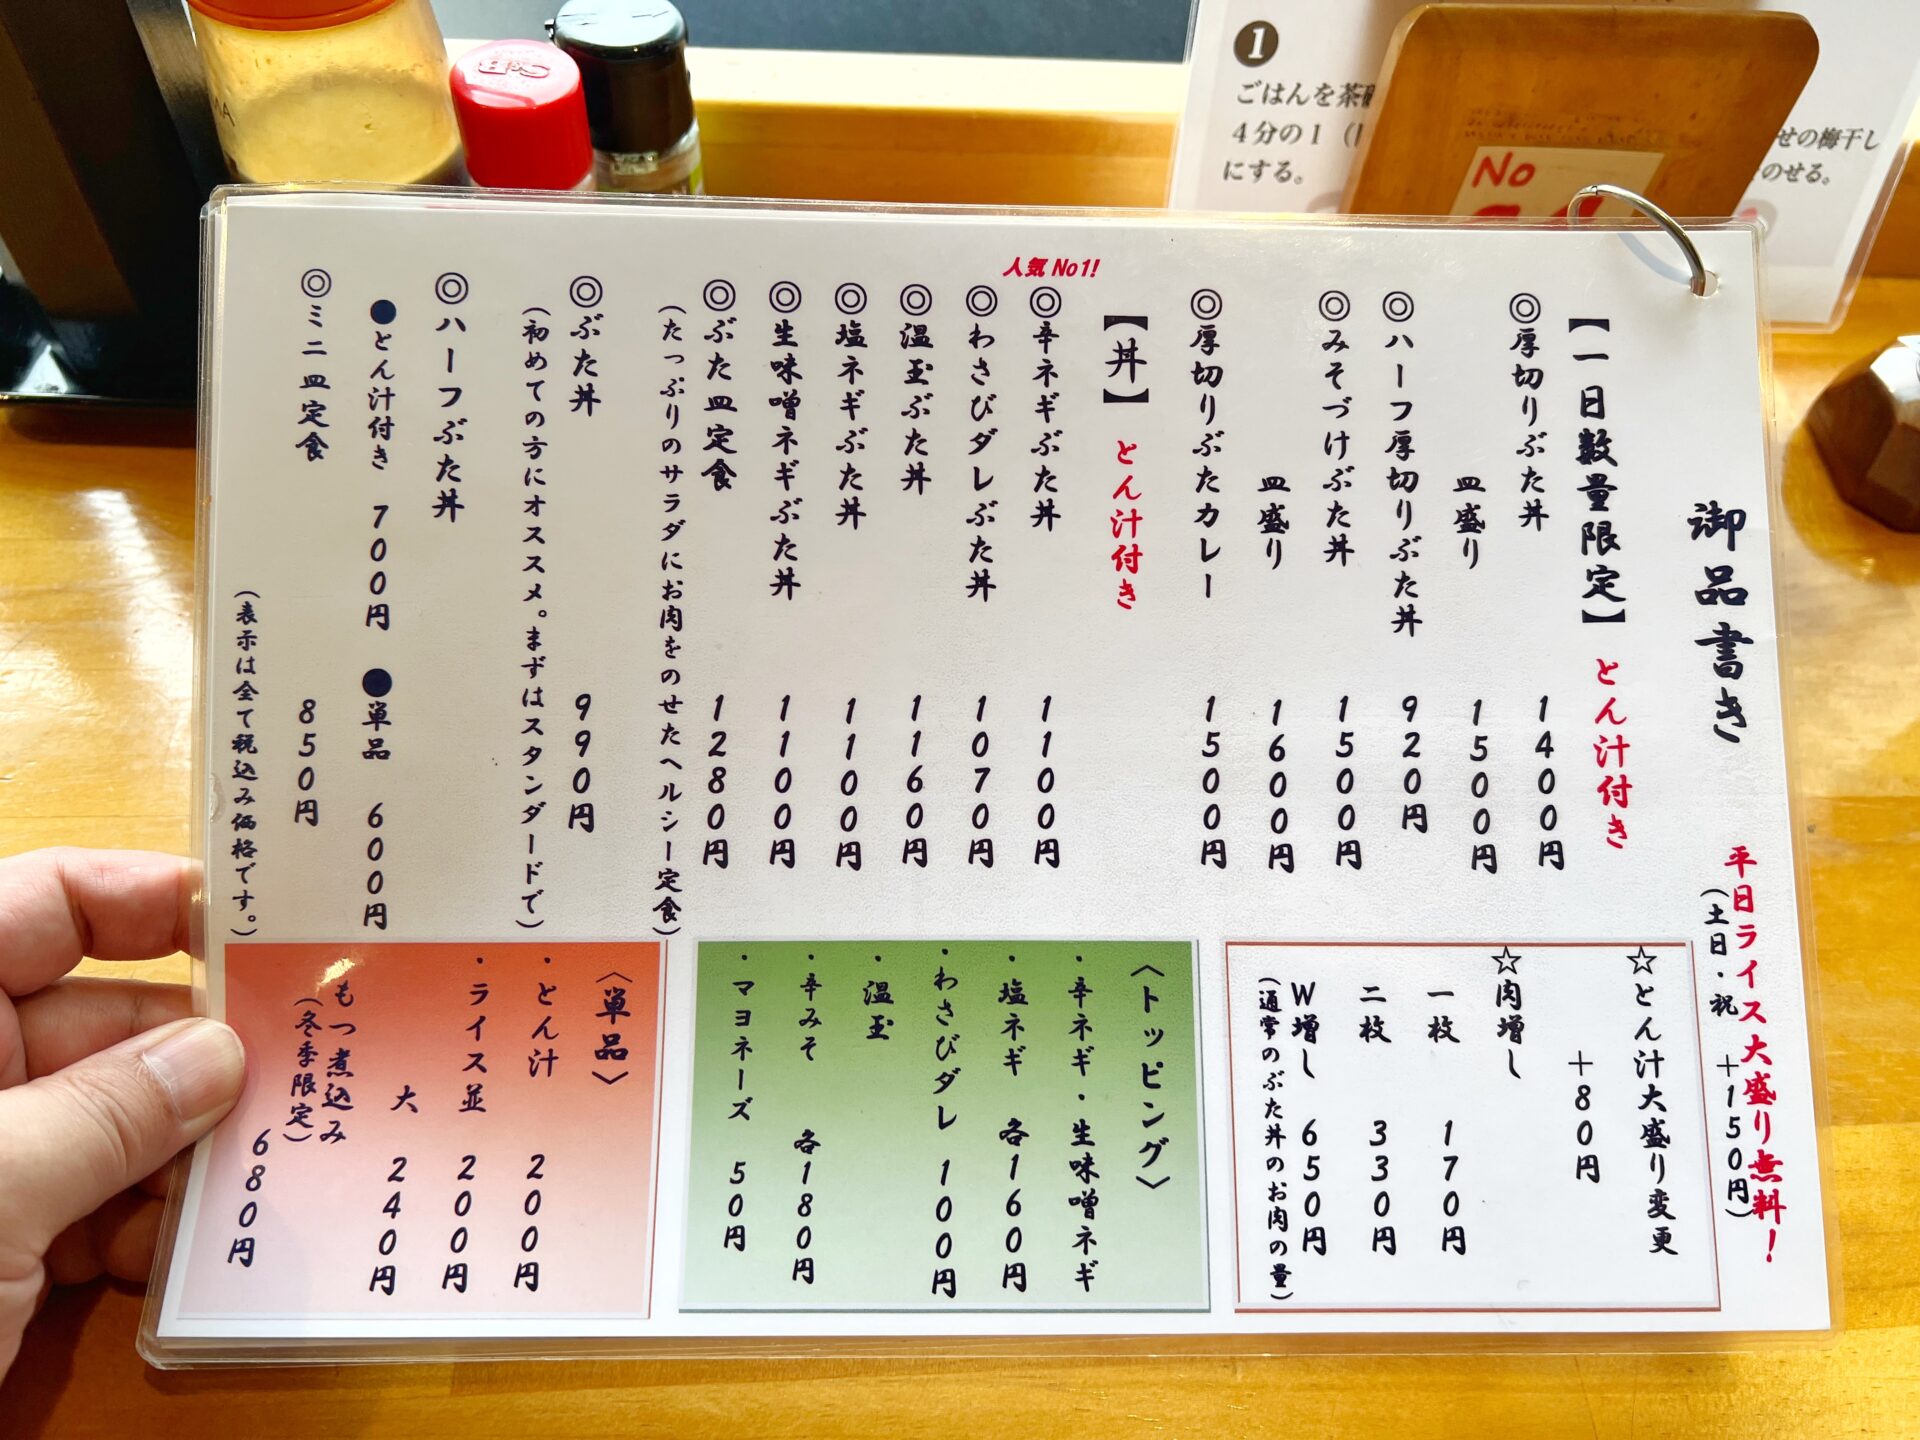 御品書き
平日ライス大盛り無料！
（土日・祝　＋150円）
【一日数量限定】　とん汁付き
◎厚切りぶた丼　1400円
皿盛り　1500円
◎ハーフ厚切りぶた丼　920円
◎みそづけぶた丼　1500円
皿盛り　1600円
◎厚切りぶたカレー　1500円
【丼】　とん汁付き
人気No1!
◎辛ネギぶた丼　1100円
◎わさびダレぶた丼　1070円
◎温玉ぶた丼　1160円
◎塩ネギぶた丼　1100円
◎生味噌ネギぶた丼　1100円
◎ぶた皿定食　1280円
（たっぷりのサラダにお肉をのせたヘルシー定食）
◎ぶた丼　990円
（初めての方にオススメ。まずはスタンダードで）
◎ハーフぶた丼
●とん汁付き　700円　●単品　600円
◎ミニ皿定食　850円
（表示は全て税込み価格です。）
☆とん汁大盛り変更
＋80円
☆肉増し
一枚　170円
二枚　330円
W増し　650円
（通常のぶた丼のお肉の量）
〈トッピング〉
・辛ネギ・生味噌ネギ
・塩ネギ　各160円
・わさびダレ　100円
・温玉
・辛みそ　各180円
・マヨネーズ　50円
〈単品〉
・とん汁　200円
・ライス並　200円
大　240円
もつ煮込み
（冬季限定）　680円
❶
ごはんを茶
4分の1
にする。
せの梅干し
のせる。
No
S&B